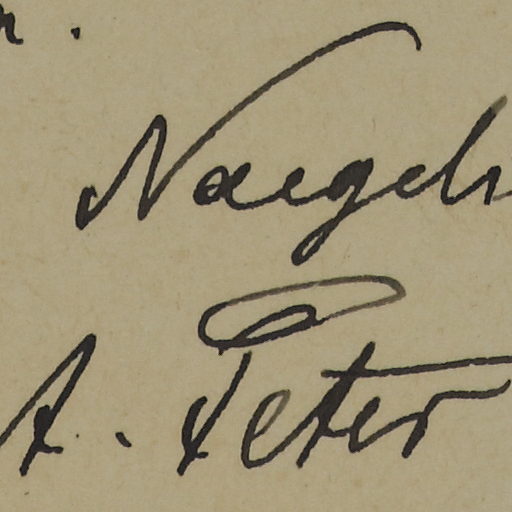 Naegeli
A. Peter